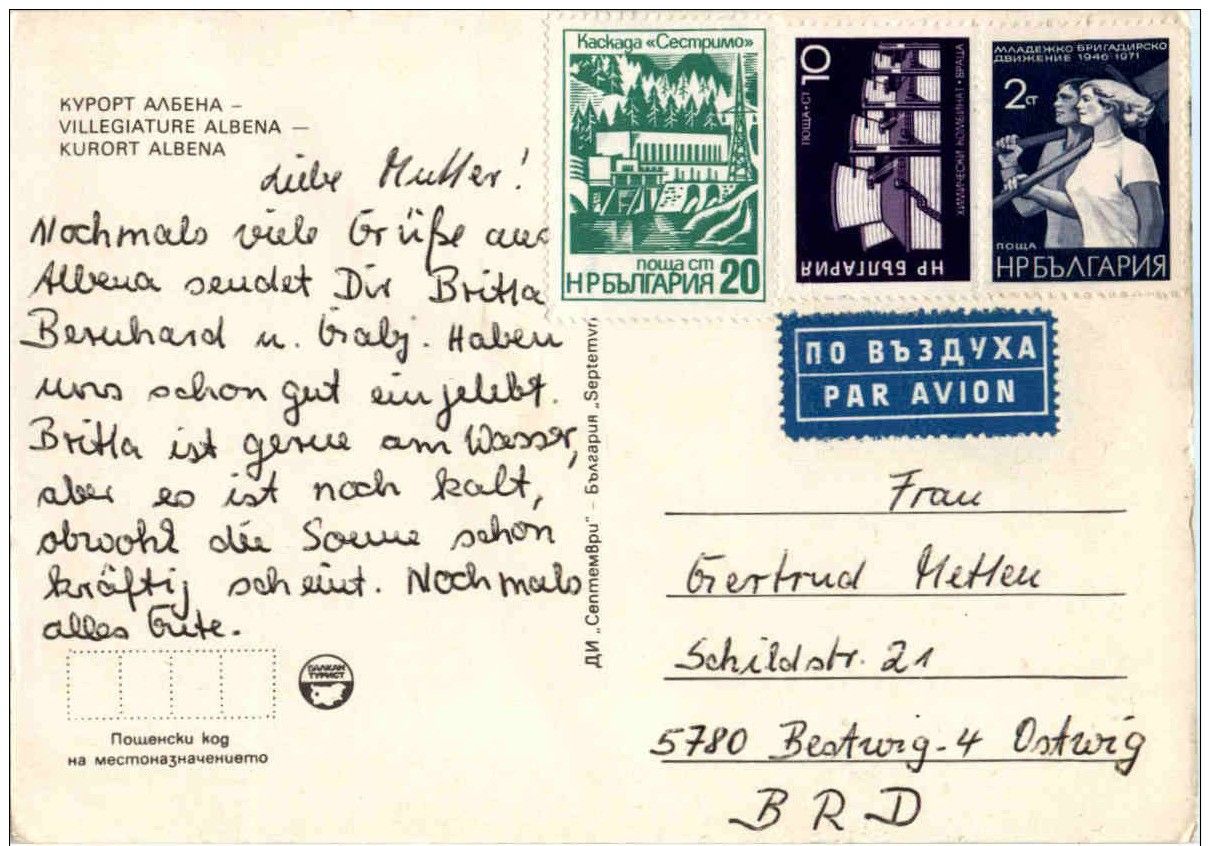 КУРОРТ АЛБЕНА –
VILLEGIATURE ALBENA —
KURORT ALBENA
Liebe Mutter!
Nochmals viele Grüße aus
Albena sendet Dir Britta
Bernhard u. Gaby. Haben
uns schon gut eingelebt.
Britta ist gerne am Wasser,
aber es ist noch kalt,
obwohl die Sonne schon
kräftig scheint. Nochmals
alles Gute.
БАЛКАН
ТУРИСТ
Пощенски код
на местоназначението
ДИ „Септември" – България „Septemvri
Каскада «Сестримо»
поща ст
НРБЪЛГАРИЯ 20
10
ПОЩА•СТ
ХИМИЧЕСКИ КОМБИНАТ • ВРАЦА
НР БЪЛГАРИЯ
МЛАДЕЖКО БРИГАДИРСКО
ДВИЖЕНИЕ 1946 1971
2 СТ
ПОЩА
НРБЪЛГАРИЯ
ПО ВЪЗДУХА
PAR AVION
Frau
Gertrud Metten
Schildstr. 21
5780 Bestwig-4 Ostwig
BRD